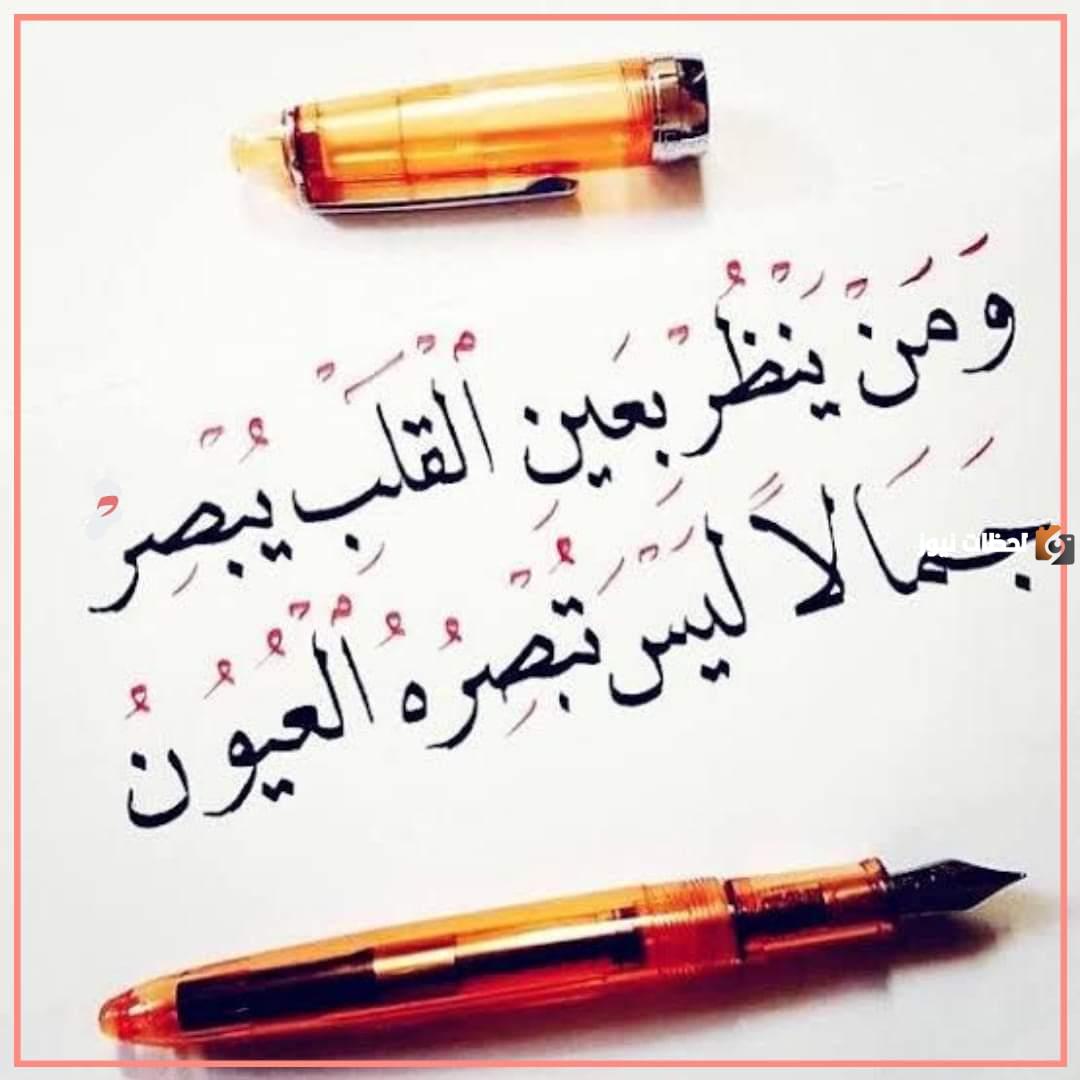 وَمَنْ يَنْظُرْ بِعَينِ ٱلْقَلْبِ يُبْصِرْ
جَمَالاً لَيْسَ تُبْصِرُهُ ٱلْعُيُونُ
لحظات نيوز